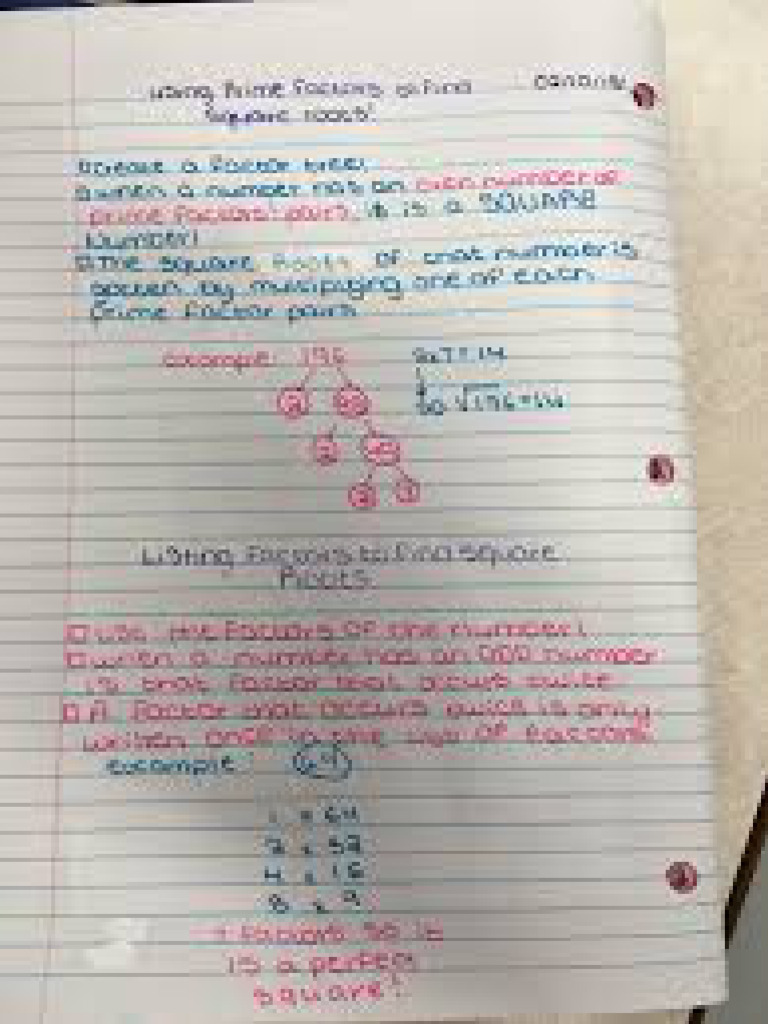 Using Prime Factors to Find
Square roots!
Create a factor tree!
when a number has an even number of
prime factors pairs, it is a SQUARE
Number!
The square Roots of that number is
by multiplying one of each
prime factor pairs
example: 196
2x7=14
2 98
so √196=14
2 49
7
Listing Factors to find square
Roots
the factors of the number!
when a number has an ODD number
is that factor that occurs twice
A factor that occurs twice is only
written once in the list of factors.
example: 64
1 x 64
2 x 32
4 x 16
8 x
factors so it
is a perfect
square!